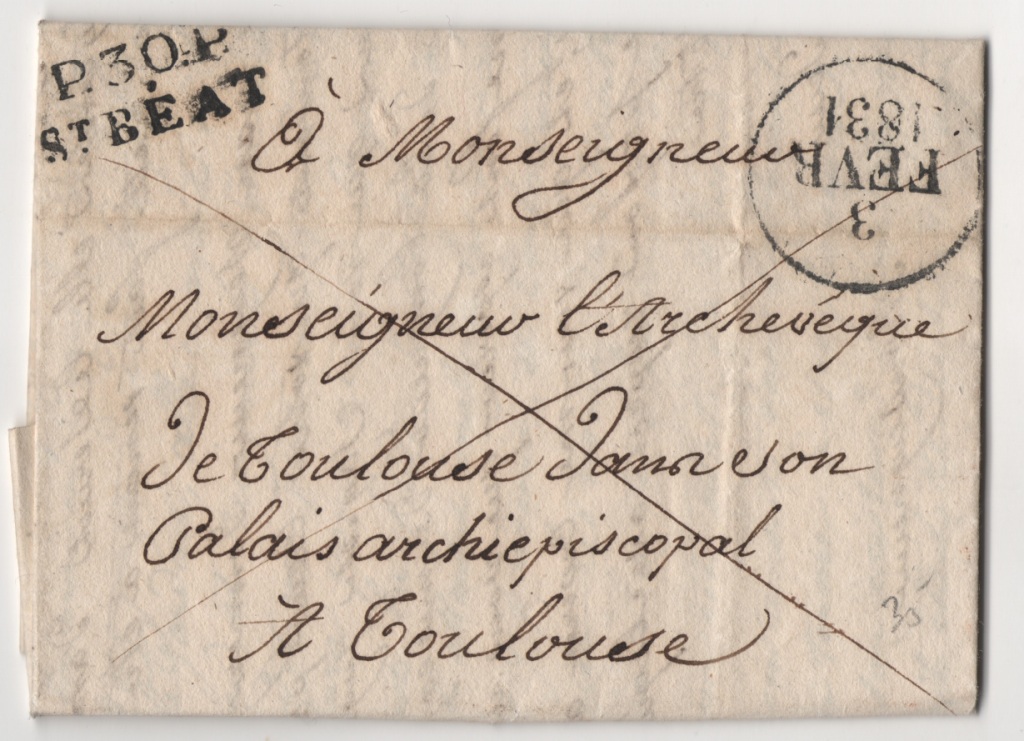 P.30.P.
ST BÉAT
3
FEVR
1831
À Monseigneur
Monseigneur l'Archevêque
de Toulouse dans son
Palais archiepiscopal
A Toulouse
35